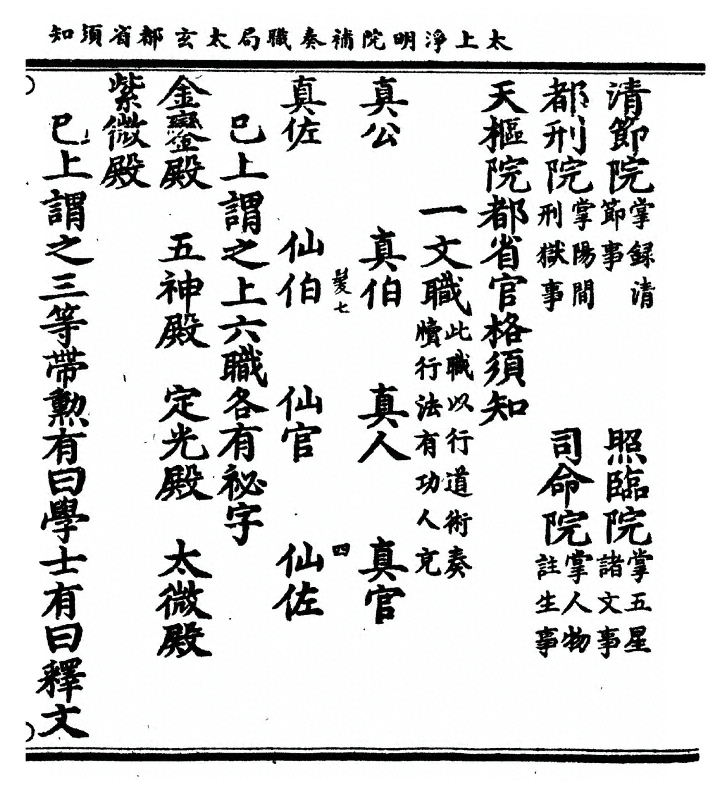 太上淨明院補奏職局太玄都省須知
清節院掌録清節事　照臨院掌五星諸文事
都刑院掌陽間刑獄事　司命院掌人物註生事
天樞院都省官格須知
一文職此職以行道術奏牘行法有功人充
真公　真伯　真人　真官
髮七　四
真佐　仙伯　仙官　仙佐
已上謂之上六職各有祕字
金鑾殿　五神殿　定光殿　太微殿
紫微殿
已上謂之三等帶勲有曰學士有曰釋文